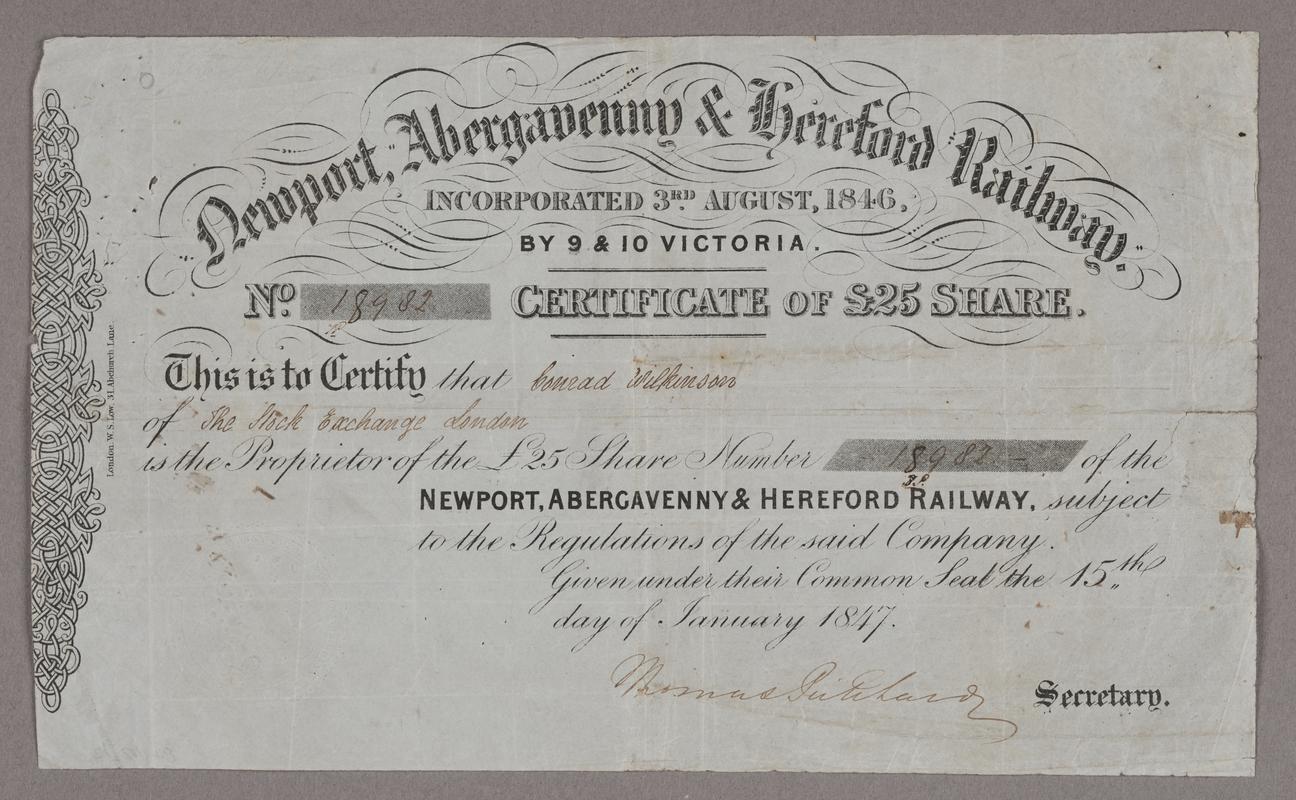 Newport, Abergavenny & Hereford Railway.
INCORPORATED 3RD AUGUST, 1846,
BY 9 & 10 VICTORIA.
No. 18982 CERTIFICATE OF £25 SHARE.
This is to Certify that Conrad Wilkinson
of The Stock Exchange London
is the Proprietor of the £25 Share Number 18982 of the
NEWPORT, ABERGAVENNY & HEREFORD RAILWAY, subject
to the Regulations of the said Company.
Given under their Common Seal the 15th
day of January 1847.
Thomas Pritchard Secretary.
London: W. S. Low, 31, Abchurch Lane.